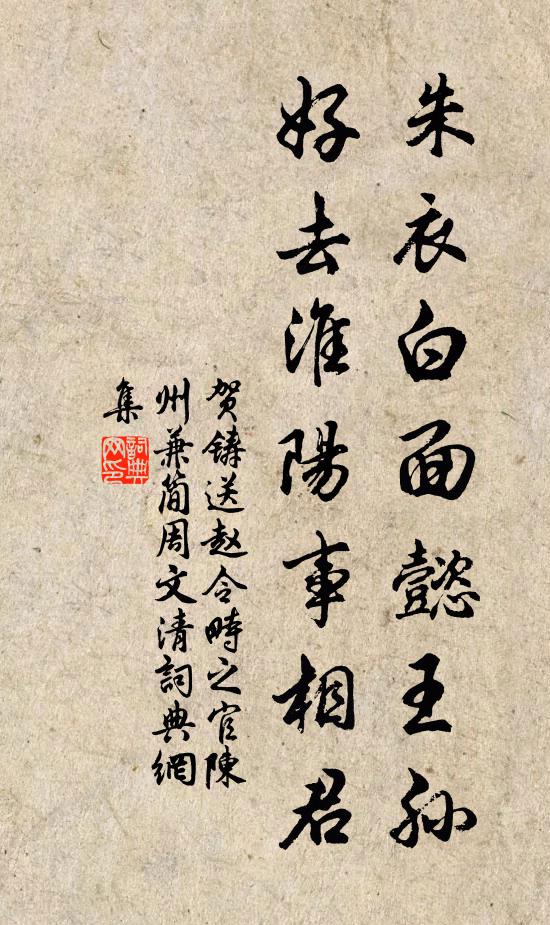 朱衣白面懿王孙
好去淮陽事相君
贺鑄送赵令畤之官陳
州兼简周文清詞典網
集
詞典
网印